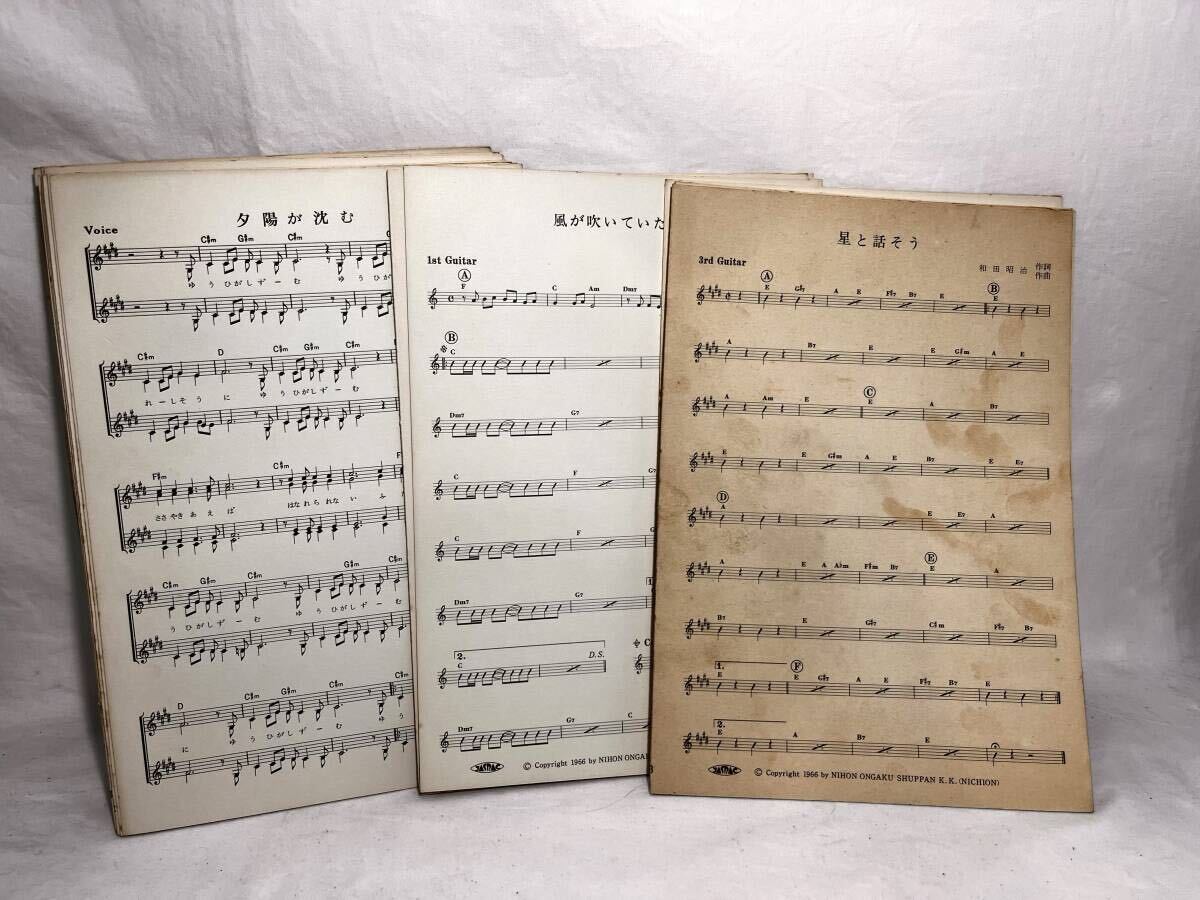 夕陽が沈む
Voice
C#m G#m C#m
ゆうひがしずーむ ゆうひが
C#m D C#m G#m C#m
れーしそうに ゆうひがしずーむ
F#m C#m F
ささやきあえば はなれられないふ
C#m G#m C#m G#m
うひがしずーむ ゆうひがしずーむ
D C#m G#m C#m
に ゆうひがしずーむ ゆう
風が吹いていた
1st Guitar
A
F C Am Dm7
B
C
Dm7 G7
C F G7
C F
Dm7 G7 1
2. D.S. C
C
Dm7 G7 C
JASRAC © Copyright 1966 by NIHON ONGAKU SHUPPAN K.K.
星と話そう
3rd Guitar 和田昭治 作詞
作曲
A B
E G#7 A E F#7 B7 E
A B7 E E G#m A E
C
A Am E E A B7
E E G#m A E B7 E E7
D
A E E7 A
E
E A A#m F#m B7 E A
B7 E G#7 C#m F#7 B7
1. F
E E G#7 A E F#7 B7 E
2.
E A B7 E
JASRAC © Copyright 1966 by NIHON ONGAKU SHUPPAN K.K. (NICHION)